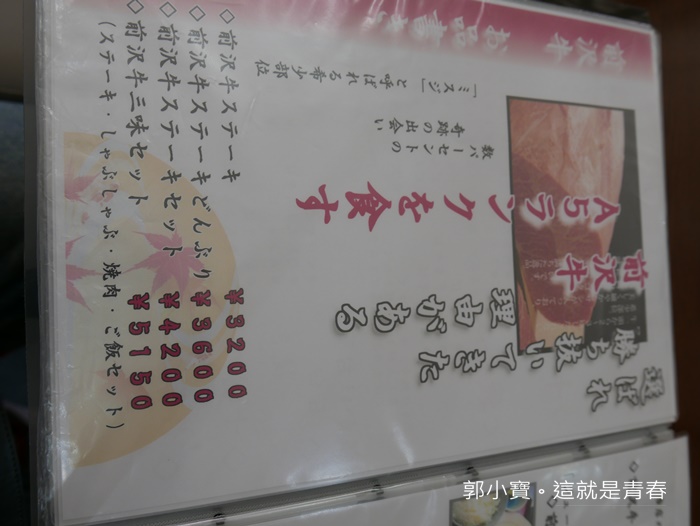 前沢牛 お品書き
選ばれ
勝ち抜いてきた
理由がある
前沢牛
A5ランクを食す
数パーセントの
奇跡の出会い
「ミスジ」と呼ばれる希少部位
◇前沢牛ステーキ ¥3200
◇前沢牛ステーキどんぶり ¥3600
◇前沢牛ステーキセット ¥4200
◇前沢牛三味セット ¥5150
(ステーキ・しゃぶしゃぶ・焼肉・ご飯セット)
郭小寶。這就是青春